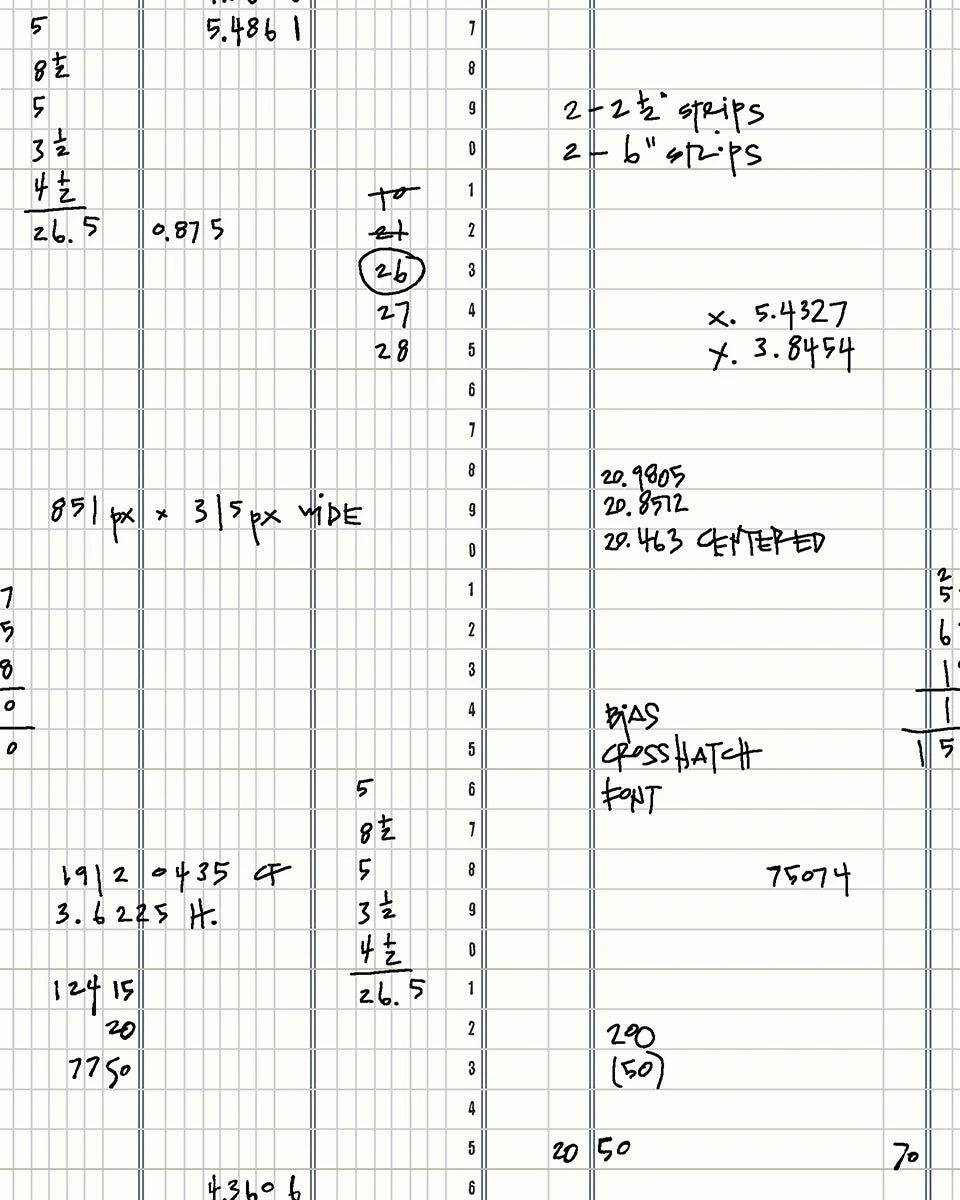 5
5.4861
7
8 1/2
8
5
9
2 - 2 1/2" strips
3 1/2
0
2 - 6" strips
4 1/2
10
1
26.5
0.875
21
2
26
3
27
4
x. 5.4327
28
5
y. 3.8454
6
7
8
20.9805
851 px x 315 px WIDE
9
20.8512
0
20.463 CENTERED
2
7
1
5
5
2
6
8
3
1
0
4
BIAS
1
0
5
CROSSHATCH
15
5
6
FONT
8 1/2
7
1912 0435 CF
5
8
75074
3.6225 H.
3 1/2
9
4 1/2
0
12415
26.5
1
20
2
200
7750
3
(50)
4
5
20 50
70
4.3606
6